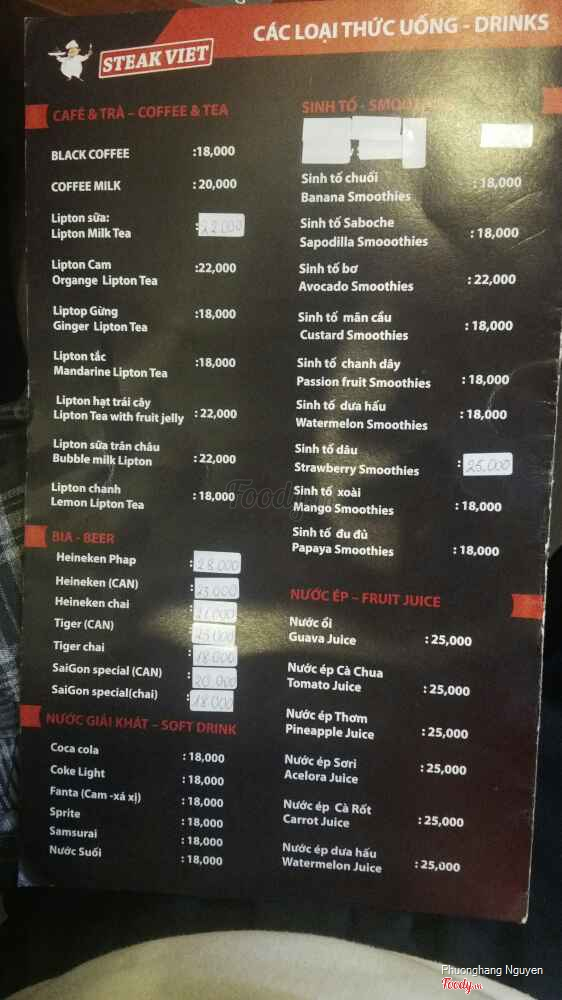 STEAK VIET
CÁC LOẠI THỨC UỐNG - DRINKS
CAFÉ & TRÀ – COFFEE & TEA
BLACK COFFEE :18,000
COFFEE MILK : 20,000
Lipton sữa:
Lipton Milk Tea : 22.000
Lipton Cam :22,000
Organge Lipton Tea
Liptop Gừng :18,000
Ginger Lipton Tea
Lipton tắc :18,000
Mandarine Lipton Tea
Lipton hạt trái cây
Lipton Tea with fruit jelly : 22,000
Lipton sữa trân châu
Bubble milk Lipton : 22,000
Lipton chanh : 18,000
Lemon Lipton Tea
BIA - BEER
Heineken Phap : 28.000
Heineken (CAN) : 23.000
Heineken chai : 21.000
Tiger (CAN)
Tiger chai : 18.000
SaiGon special (CAN) : 20.000
SaiGon special(chai) : 18.000
NƯỚC GIẢI KHÁT – SOFT DRINK
Coca cola : 18,000
Coke Light : 18,000
Fanta (Cam -xá xị) : 18,000
Sprite : 18,000
Samsurai : 18,000
Nước Suối : 18,000
SINH TỐ - SMOOTHIES
Sinh tố chuối : 18,000
Banana Smoothies
Sinh tố Saboche : 18,000
Sapodilla Smooothies
Sinh tố bơ : 22,000
Avocado Smoothies
Sinh tố mãn cầu : 18,000
Custard Smoothies
Sinh tố chanh dây : 18,000
Passion fruit Smoothies
Sinh tố dưa hấu : 18,000
Watermelon Smoothies
Sinh tố dâu : 25,000
Strawberry Smoothies
Sinh tố xoài : 18,000
Mango Smoothies
Sinh tố đu đủ : 18,000
Papaya Smoothies
NƯỚC ÉP – FRUIT JUICE
Nước ổi
Guava Juice : 25,000
Nước ép Cà Chua
Tomato Juice : 25,000
Nước ép Thơm
Pineapple Juice : 25,000
Nước ép Sơri
Acelora Juice : 25,000
Nước ép Cà Rốt
Carrot Juice : 25,000
Nước ép dưa hấu
Watermelon Juice : 25,000
Foody
Phuonghang Nguyen
Foody.vn